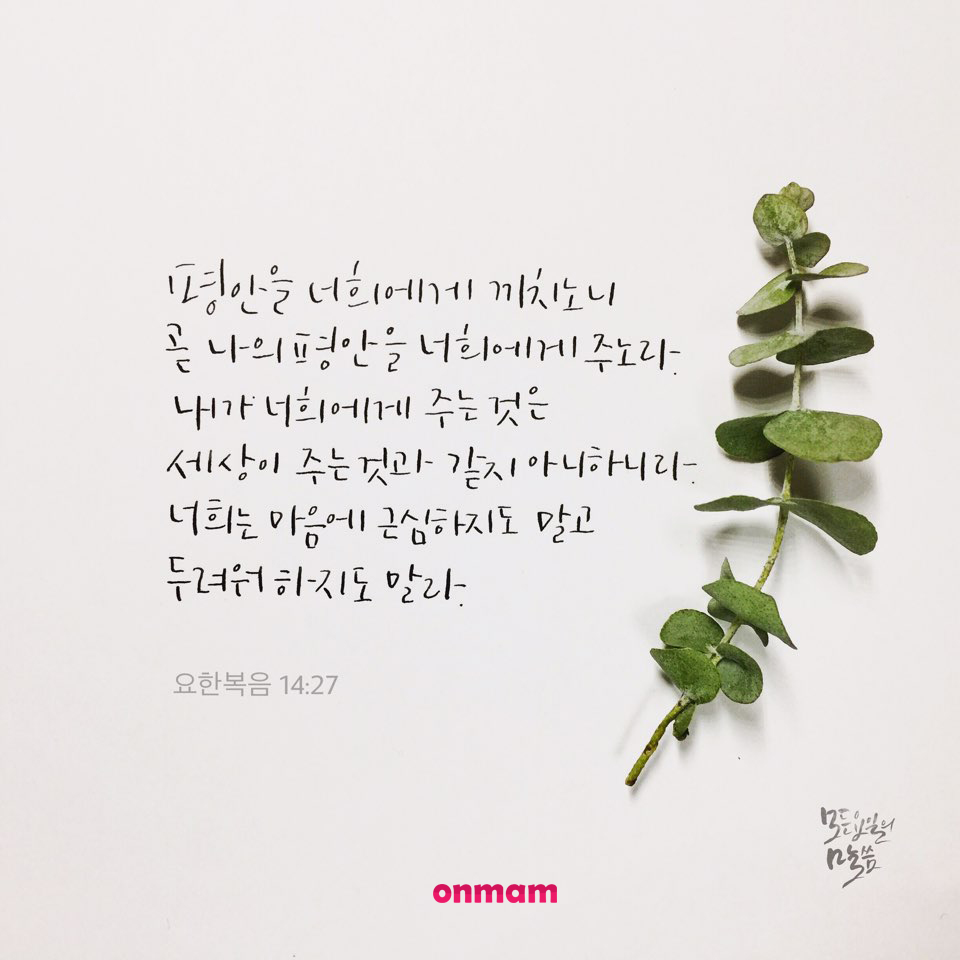 평안을 너희에게 끼치노니
곧 나의 평안을 너희에게 주노라.
내가 너희에게 주는 것은
세상이 주는 것과 같지 아니하니라.
너희는 마음에 근심하지도 말고
두려워 하지도 말라.
요한복음 14:27
모든요일의
말씀
onmam